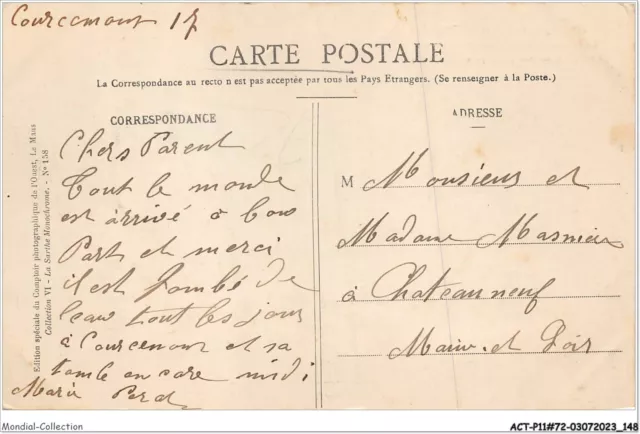 Courcemont 17
CARTE POSTALE
La Correspondance au recto n est pas acceptée par tous les Pays Etrangers. (Se renseigner à la Poste.)
CORRESPONDANCE
ADRESSE
Edition spéciale du Comptoir photographique de l'Ouest, Le Mans
Collection VI - La Sarthe Monochrome. - N° 158
Chers Parent
Tout le monde
est arrivé à bon
Part et merci
il est tombé de
leau tout les jour
à Courcemont et sa
tombe en care midi
Marie
M Monsieur et
Madame
à Chateauneuf
Maine et Loir
Mondial-Collection
ACT-P11#72-03072023_148